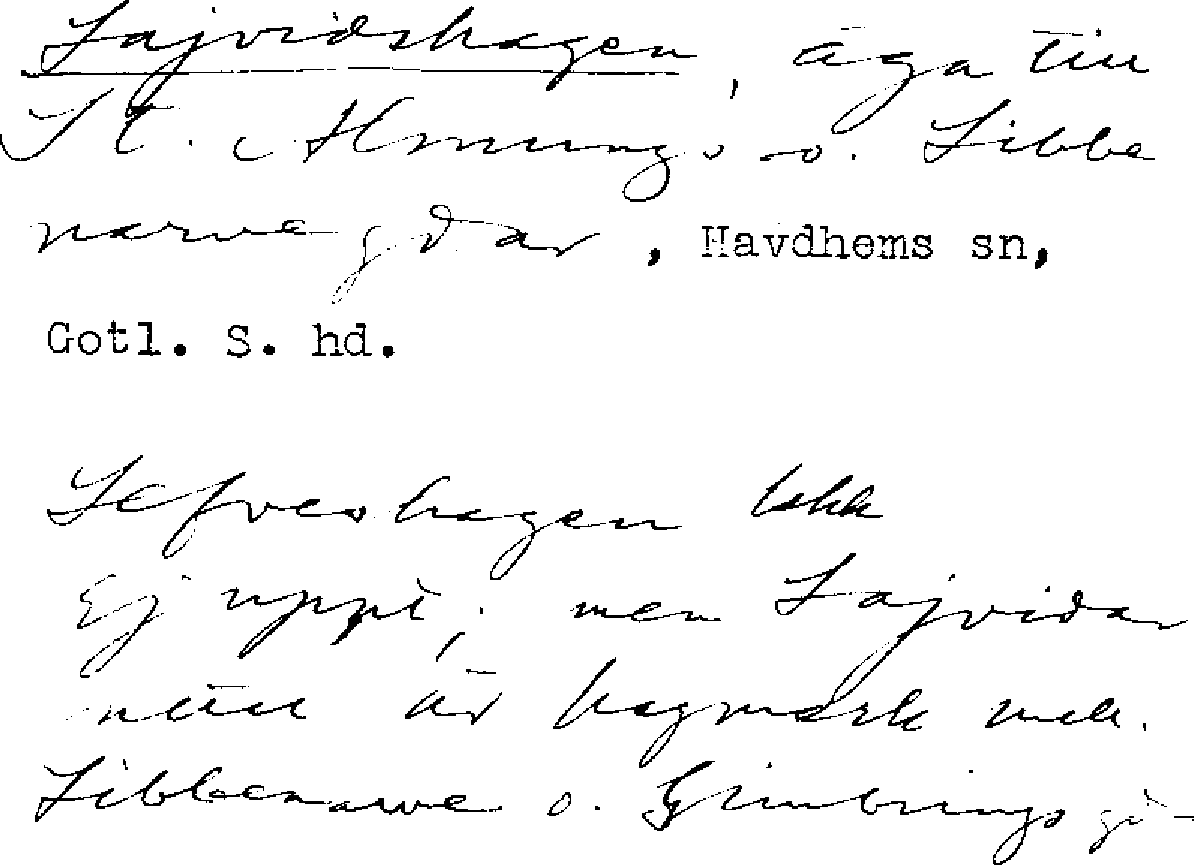 Lajvidshagen, äga till
St. Almungs o. Libbe
narve gdar, Havdhems sn,
Gotl. S. hd.
Lefveshagen
Ej uppt, men Lajvidar
är hagmark mell.
Libbenarve o. Gimbrings